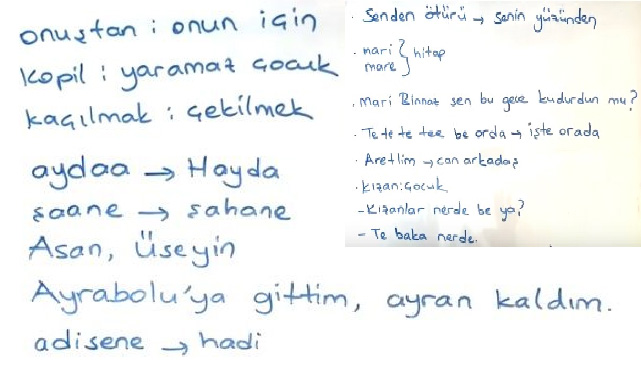 onuştan : onun için
kopil : yaramaz çocuk
kaçılmak : çekilmek
aydaa → Hayda
şaane → şahane
Asan, Üseyin
Ayrabolu'ya gittim, ayran kaldım.
adisene → hadi
. Senden ötürü → senin yüzünden
. mari } hitap
mare
. Mari Binnaz sen bu gece kudurdun mu?
. Te te te tee be orda → işte orada
. Aretlim → can arkadaş
. kızan : çocuk
- Kızanlar nerde be ya?
- Te baka nerde.